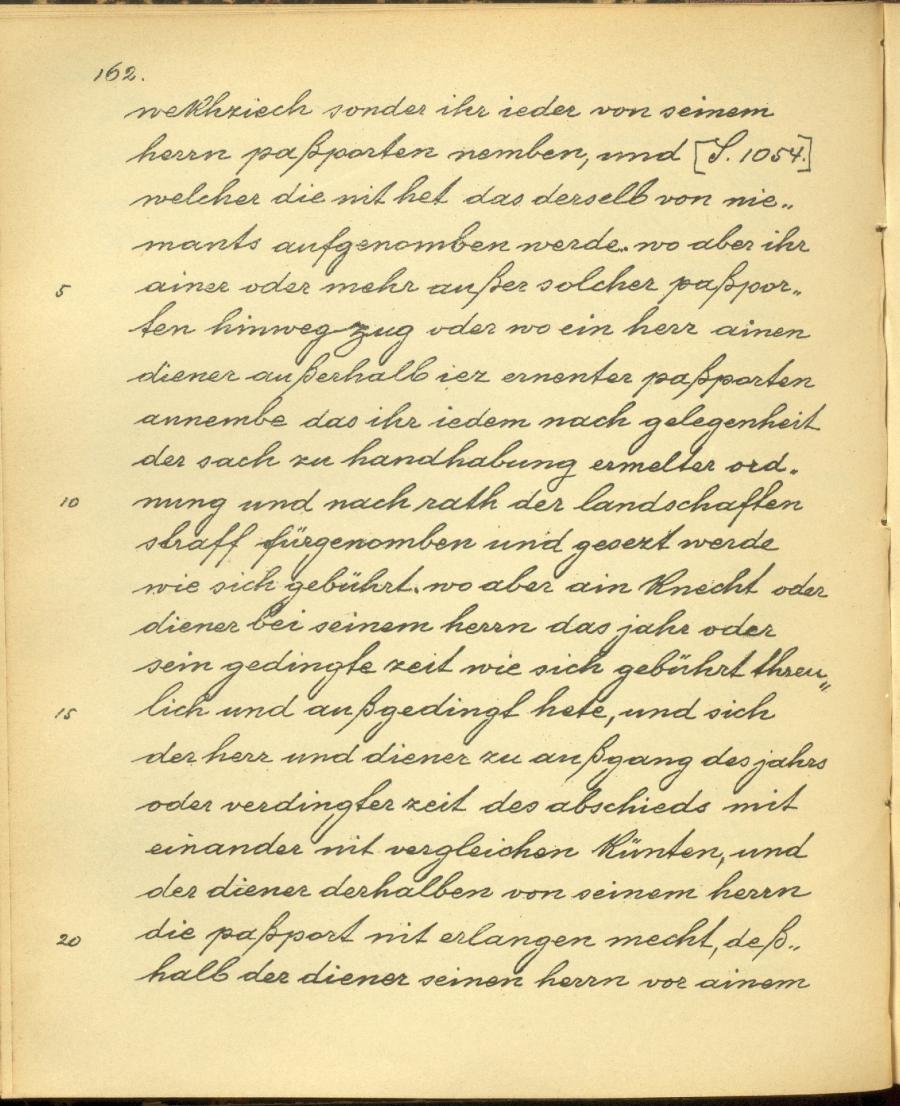 162.
wekhziech sonder ihr ieder von seinem
herrn paßporten nemben, und [S. 1054.]
welcher die nit het das derselb von nie„
mants aufgenomben werde. wo aber ihr
5 ainer oder mehr außer solcher paßpor„
ten hinweg zug oder wo ein herr ainen
diener außerhalb iez ernenter paßporten
annembe das ihr iedem nach gelegenheit
der sach zu handhabung ermelter ord„
10 nung und nach rath der landschaften
straff fürgenomben und gesezt werde
wie sich gebührt. wo aber ain knecht oder
diener bei seinem herrn das jahr oder
sein gedingte zeit wie sich gebührt threu„
15 lich und außgedingt hete, und sich
der herr und diener zu außgang des jahrs
oder verdingter zeit des abschieds mit
einander nit vergleichen künten, und
der diener derhalben von seinem herrn
20 die paßport nit erlangen mecht, deß„
halb der diener seinen herrn vor ainem